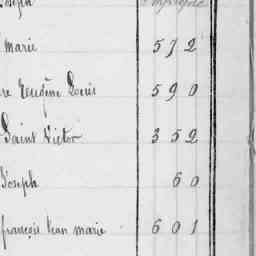 Joseph
marie 572
re Eugène Louis 590
Saint Victor 352
Joseph 60
françois Jean marie 601